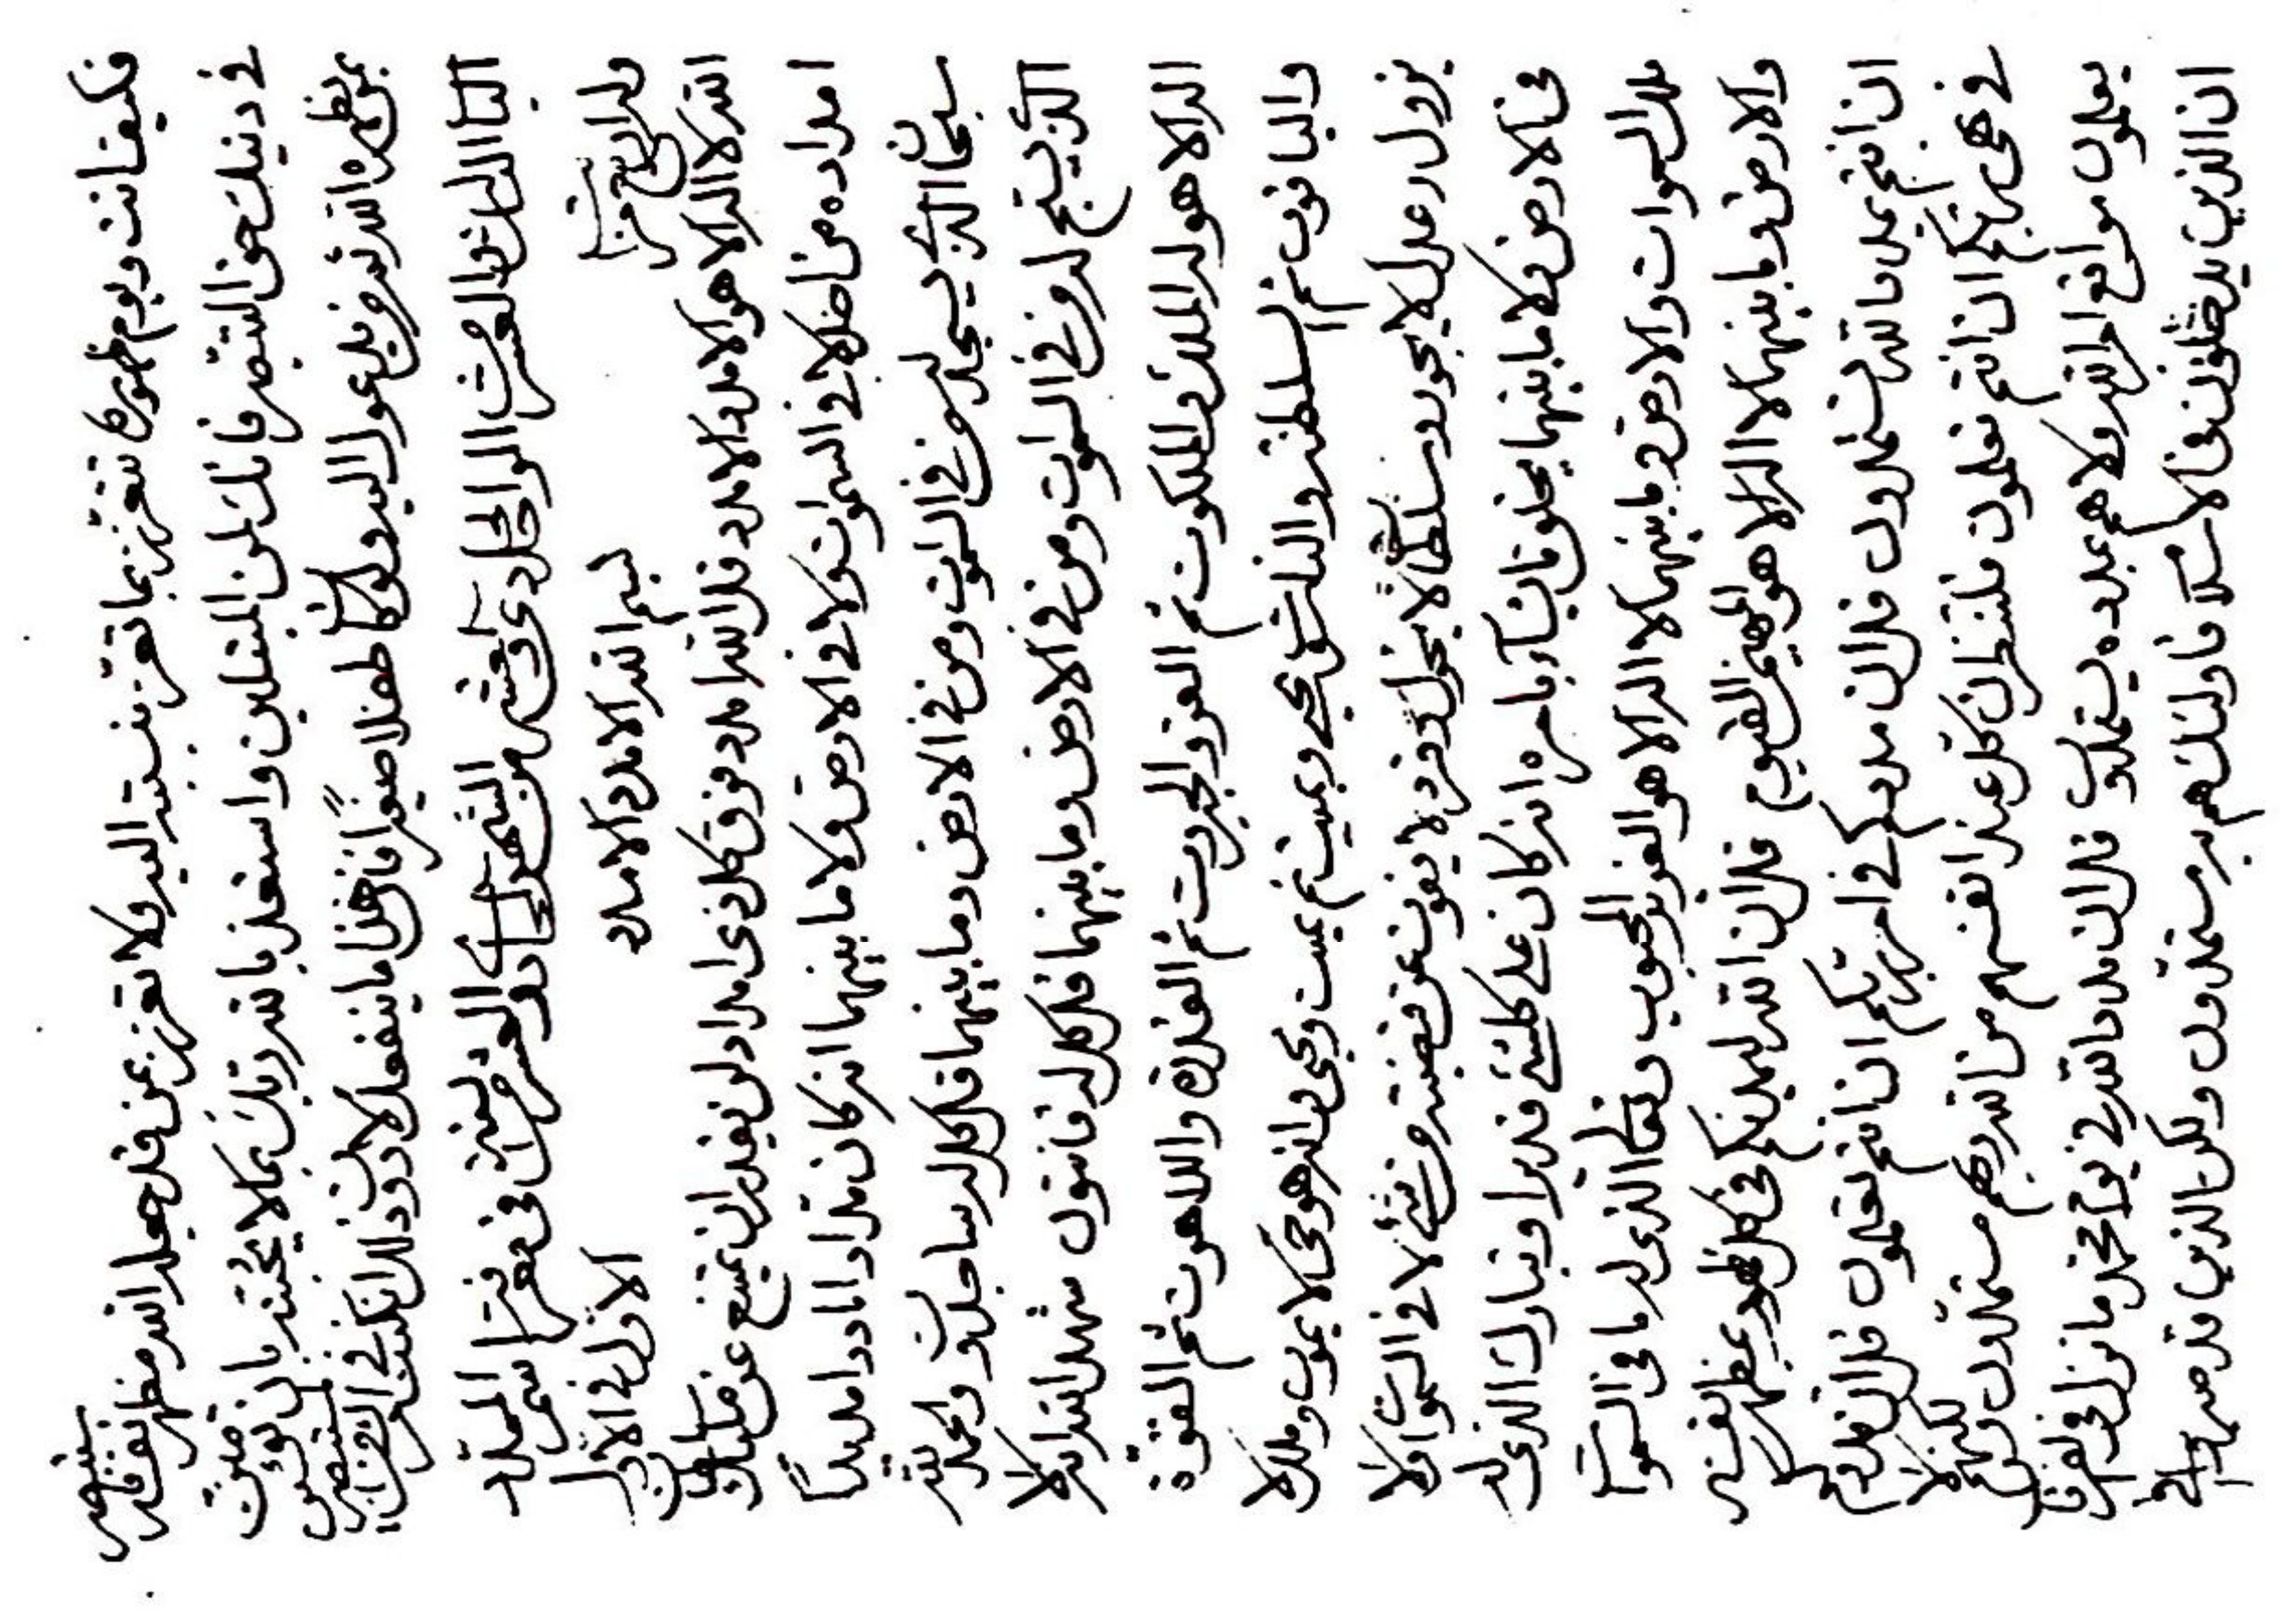 فكيف انت ويوم ظهوره تتعززن بما تعزز بنسبته اليه ولا تعززن عمن قد جعله الله مظهر نفسه
في دينك حق التبصر فانك لمن المبتلين واستعذ بالله ربك بان توقنن
بمن يظهره الله ثم من يدعوا اليه ولو كان طفلا صغيرا فان هذا ما ينفعك لا دون ذلك ان كنت في البيان لمن المستبصرين
الباب الثالث والعشر من الواحد الحادي والعشر من الشهر الحادي والعشر من السنة في معرفة اسم الممدد
وله اربع مراتب بسم الله الامدد الامدد الاول في الاول
الله لا اله الا هو الامدد الامدد قل الله امدد فوق كل ذي امداد لن يقدر ان يمتنع عن مليك سلطان
امداده من احد لا في السموات ولا في الارض ولا ما بينهما انه كان مدادا ماددا مديدا
سبحان الذي يسجد له من في السموات ومن في الارض وما بينهما قل كل له ساجدون والحمد لله
الذي يسبح له من في السموات ومن في الارض وما بينهما قل كل له قانتون شهد الله انه لا
اله الا هو له الملك والملكوت ثم العز والجبروت ثم القدرة واللاهوت ثم القوة
والياقوت ثم السلطنة والناسوت يحيي ويميت ثم يميت ويحيي وانه هو حي لا يموت وملك لا
يزول وعدل لا يجور وسلطان لا يحول وفرد لا يفوت عن قبضته من شئ لا في السموات ولا
في الارض ولا ما بينهما يخلق ما يشآء بامره انه كان على كلشئ قديرا وتبارك الذي له
ملك السموات والارض وما بينهما لا اله الا هو العزيز المحبوب وتعالى الذي له ما في السموات
والارض وما بينهما لا اله الا هو المهيمن القيوم قل ان الله ليمدنكم في كل ظهور بمظهر نفسه
ان انتم بمداد الله تستمدون قل ان مددكم في امر ربكم ان انتم تعلمون قل ان
في نهي ربكم ان انتم تعلمون فلتنظرن كل عند انفسهم من الله ربهم مستمدون ولكنهم لا
يعلمون مواقع امر الله ولا هم بمدده يستمدون قل ان مدد الله في يوم محمد ما نزل في الفرقان
ان الذين يدخلون في الاسلام فاولئك هم به مستمدون ولكن الذين قد صبروا في